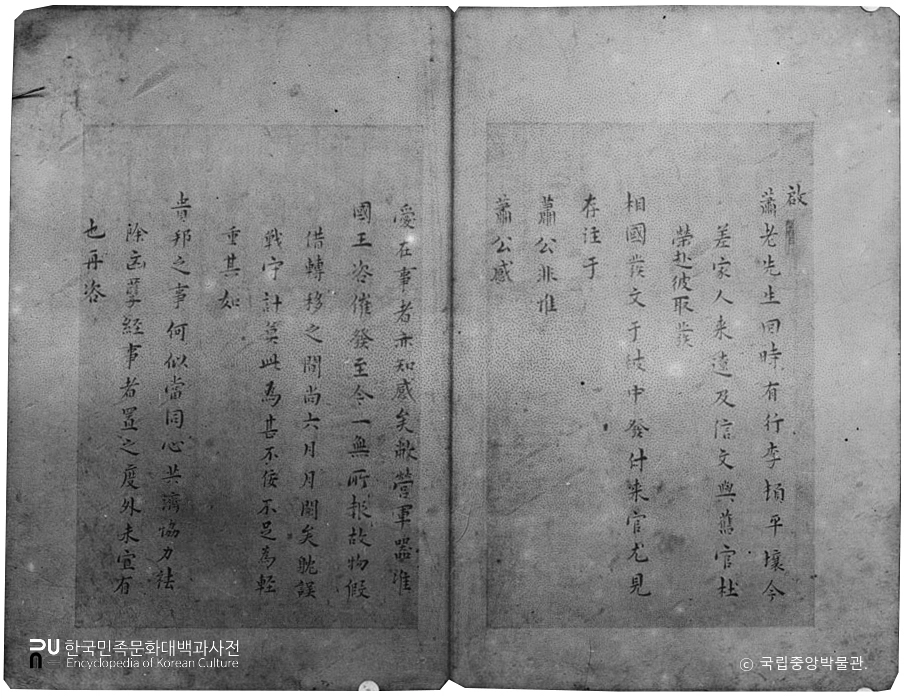 啟
蕭老先生回時有行李頓平壤今
差家人来遠及信文與舊官杜
榮赴彼取發
相國發文于彼中發付来官尤見
存注于
蕭公非惟
蕭公感
愛在事者亦知感矣敝營軍器准
國王咨催發至今一無所報故物假
借轉移之間尚六月月開矣耽誤
戰守計莫此為甚不佞不足為輕
重其如
貴邦之事何似當同心共濟協力祛
除妖孽経事者置之度外未宜有
也再咨
한국민족문화대백과사전
Encyclopedia of Korean Culture
© 국립중앙박물관.